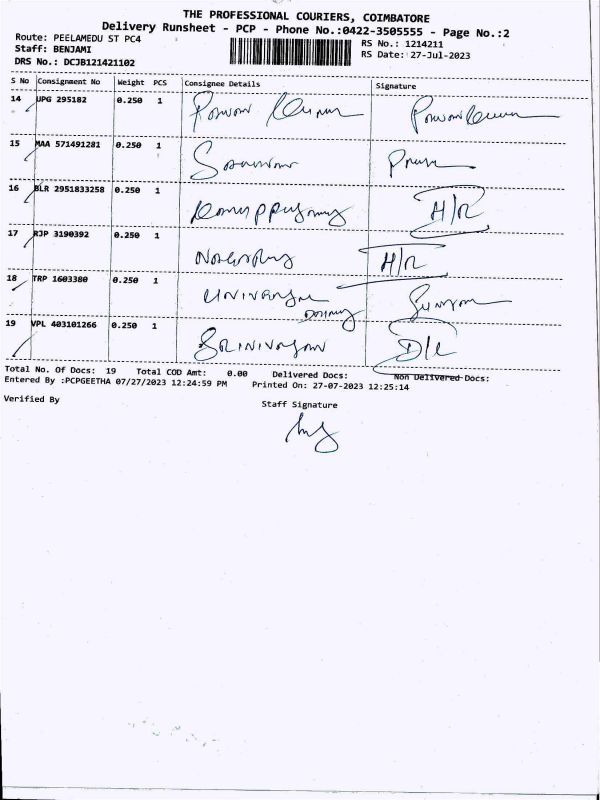 THE PROFESSIONAL COURIERS, COIMBATORE
Delivery Runsheet - PCP - Phone No.:0422-3505555 - Page No.:2
Route: PEELAMEDU ST PC4
RS No.: 1214211
Staff: BENJAMI
RS Date: 27-Jul-2023
DRS No.: DCJB121421102
S No Consignment No Weight PCS Consignee Details Signature
14 UPG 295182 0.250 1
15 MAA 571491281 0.250 1
16 BLR 2951833258 0.250 1 H/R
17 RJP 3190392 0.250 1 H/R
18 TRP 1603380 0.250 1
19 VPL 403101266 0.250 1 SRINIVASAN
Total No. Of Docs: 19 Total COD Amt: 0.00 Delivered Docs: Non Delivered Docs:
Entered By :PCPGEETHA 07/27/2023 12:24:59 PM Printed On: 27-07-2023 12:25:14
Verified By
Staff Signature